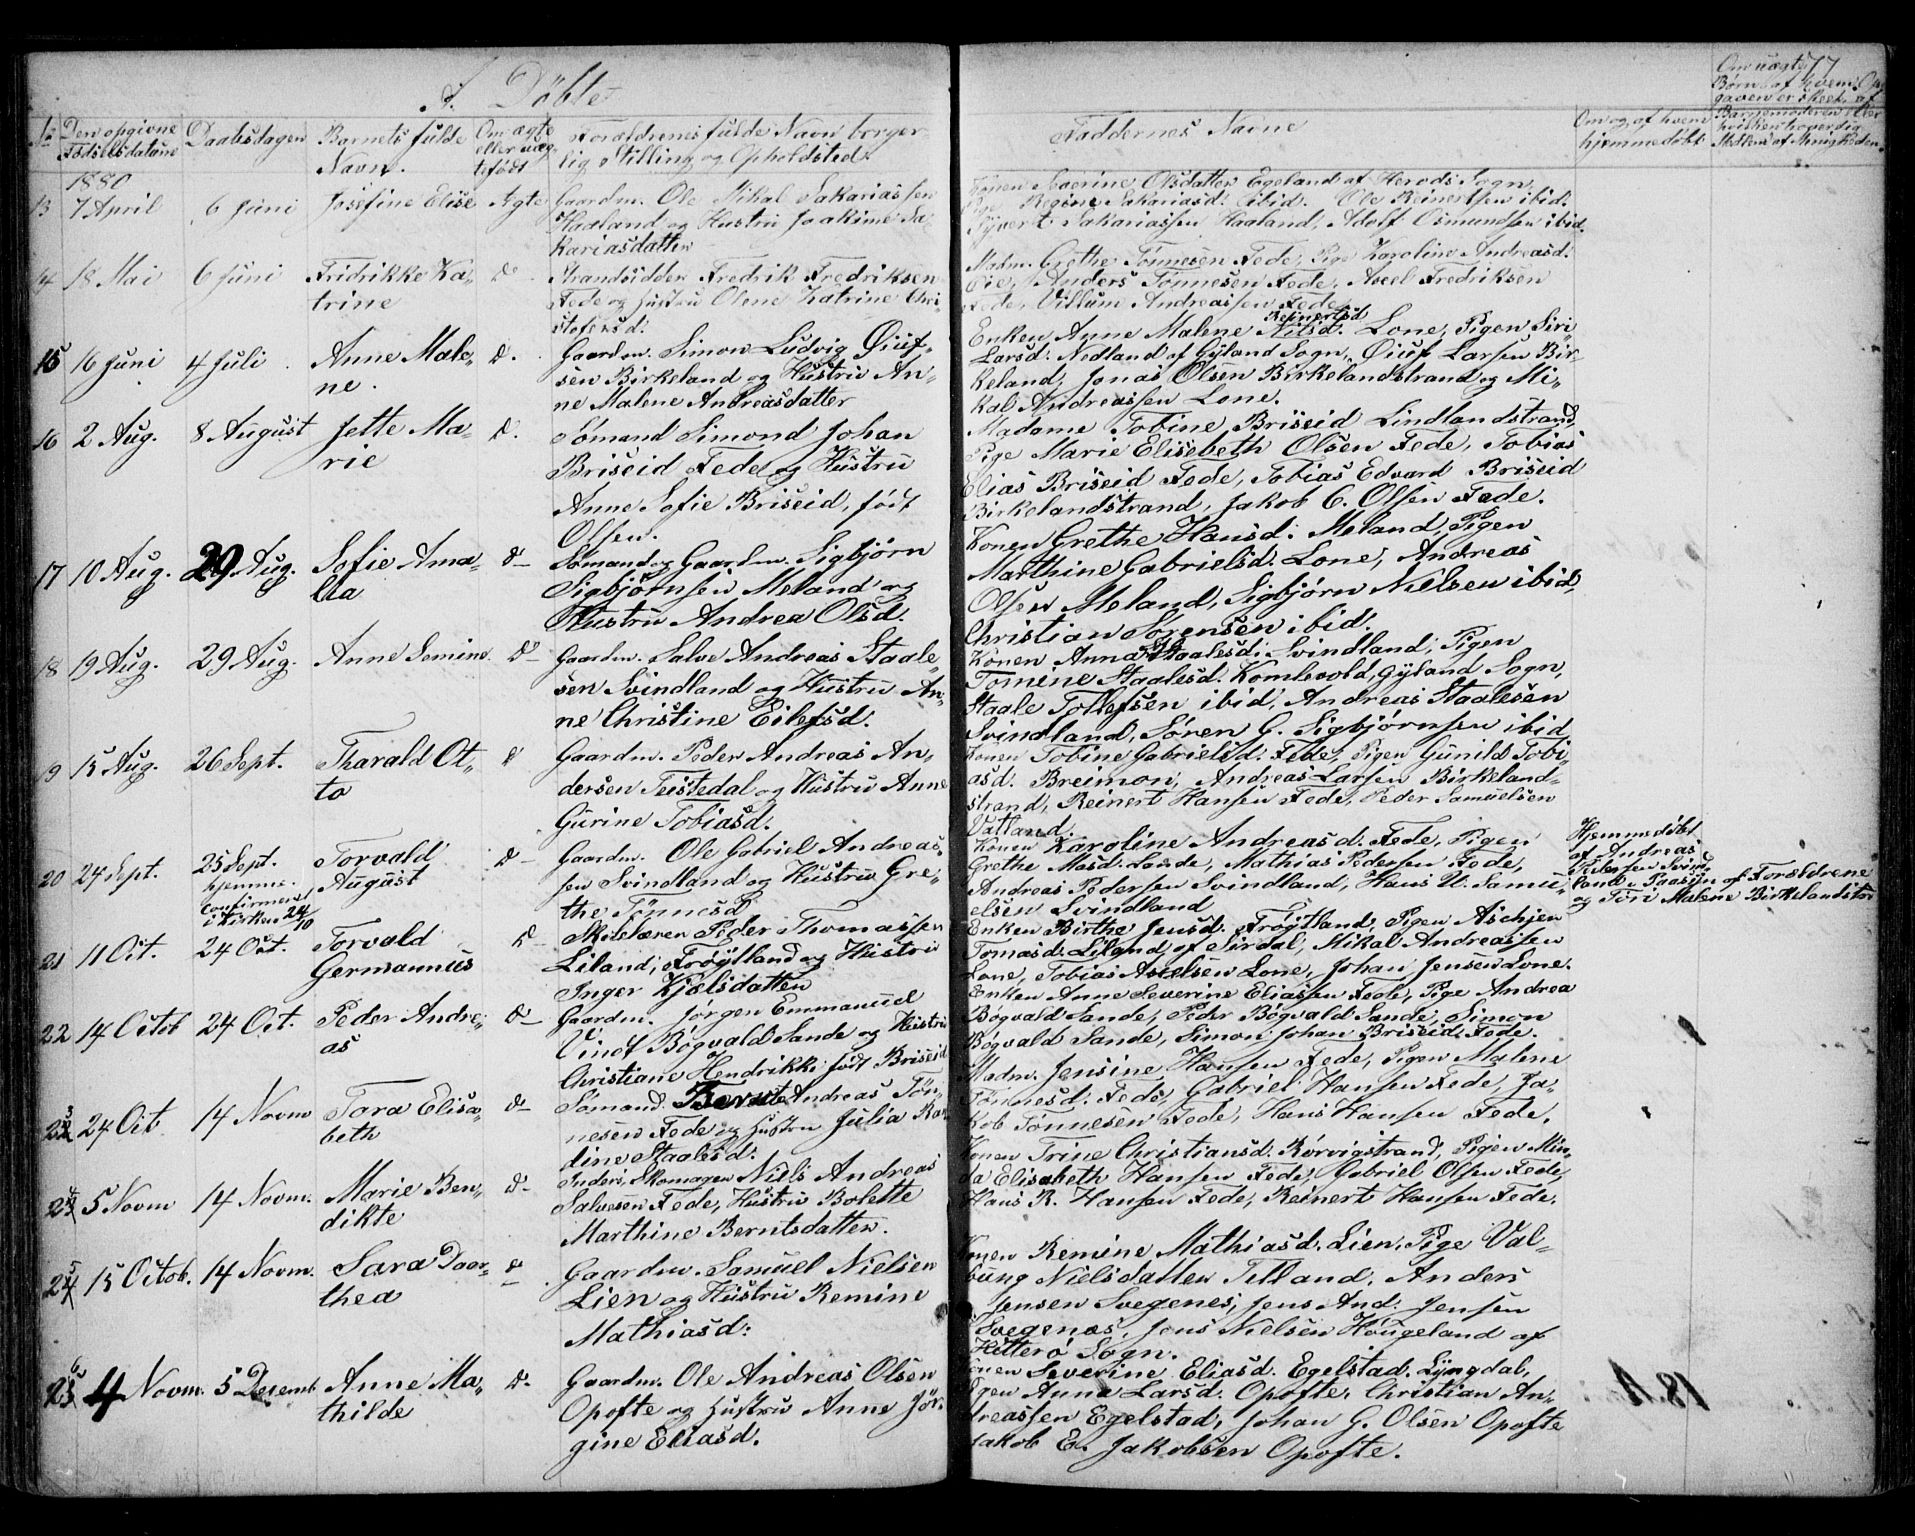 A. Döbte
No Den opgivne Fødselsdatum
Daabsdagen
Barnets fulde Navn.
Om ægte eller uægtefødt
Forældrenes fulde Navn borgerlig Stilling og Opholdsted.
Faddernes Navne
Om og af hvem hjemmedøbt
77
Om uægte
Børn: af hvem Op-
gaven er skeet, af
Barnemoderen eller
1880
13 7 April 6 Juni Josefine Elise Ægte
Gaardm. Ole Mikal Sakariassen
Haaland og Hustru Joakime Sa-
kariasdatter
Konen Severine Olsdatter Egeland af Herods Sogn
Pige Regine Sakariasd: ibid. Ole Reinertsen ibid:
Syvert Sakariassen Haaland, Adolf Osmundsen ibid.
14 18 Mai 6 Juni Fridrikke Ka-
trine
D-
Strandsidder Fredrik Fredriksen
Fede og Hustru Olene Katrine Chri-
stofersd:
Madm. Grethe Tönnesen Fede, Pige Karoline Andreasd:
Anders Tönnesen Fede, Axel Fredriksen
Fede, Villum Andreassen Fede
15 16 Juni 4 Juli Anne Male-
ne.
D.
Gaardm. Simon Ludvig Öiuf-
sen Birkeland og Hustru An-
ne Malene Andreasdatter
Reinertsd
Enken Anne Malene Nilsd. Lone, Pigen Siri
Larsd: Nedland af Gyland Sogn, Öiuf Larsen Bir-
keland, Jonas Olsen Birkelandstrand og Mi-
kal Andreassen Lone.
16 2 Aug. 8 August Jette Ma-
rie
D.
Sømand Simond Johan
Briseid Fede og Hustru
Anne Sofie Briseid, født
Olsen.
Madame Tobine Briseid Lindlandstrand,
Pige Marie Elisebeth Olsen Fede, Tobias
Elias Briseid Fede, Tobias Edvard Briseid
Birkelandstrand, Jakob C. Olsen Fede.
17 10 Aug. 29 Aug. Sofie Ama-
lia
D-
Sømand og Gaardm. Sigbjørn
Sigbjørnsen Meland og
Hustru Andrea Olsd.
Konen Grethe Hansd: Meland, Pigen
Marthine Gabrielsd. Lone, Andreas
Olsen Meland, Sigbjørn Nielsen ibid,
Christian Sørensen ibid.
18 19 Aug. 29 Aug. Anne Semine D-
Gaardm. Salve Andreas Staale-
sen Svindland og Hustru An-
ne Christine Eilefsd.
Konen Anna Staalesd: Svindland, Pigen
Tomine Staalesd. Komlevold, Gyland Sogn,
Staale Tollefsen ibid, Andreas Staalesen
Svindland, Søren G. Sigbjørnsen ibid
19 15 Aug. 26 Sept. Tharald Ot-
to
D
Gaardm. Peder Andreas An-
dersen Teistedal og Hustru Anne
Gurine Tobiasd.
Konen Tobine Gabrielsd. Fede, Pigen Gunild Tobi-
asd. Breimon, Andreas Larsen Birkeland-
strand, Reinert Hansen Fede, Peder Samuelsen
Vatland.
20 24 Sept. 25 Sept.
hjemme.
Confirmeret
i Kirken 24/10
Torvald
August
D-
Gaardm. Ole Gabriel Andreas-
sen Svindland og Hustru Gre-
the Tönnesd.
Konen Karoline Andreasd. Fede, Pigen
Grethe Mosd. Lande, Mathias Pedersen Fede,
Andreas Pedersen Svindland, Hans U. Samu-
elsen Svindland
Hjemmedøbt
af Andreas
Pedersen Svind-
land i Paasyn af Forældrene
og Tori Malene Birkelandstr
21 11 Oct. 24 Oct. Torvald
Germannius
D-
Skolelærer Peder Thomassen
Liland, Frøytland og Hustru
Inger Kjælsdatter
Enken Birthe Jensd. Frøytland, Pigen Aschjer
Tomasd. Liland af Sirdal, Mikal Andreassen
Lone, Tobias Axelsen Lone, Johan Jensen Lone.
22 14 Octob 24 Oct. Peder Andre-
as
D-
Gaardm. Jørgen Emmanuel
Vindt Bøgvald Sande og Hustru
Christiane Hendrikke født Briseid
Enken Anne Severine Eliassen Fede, Pige Andrea
Bøgvald Sande, Peder Bøgvald Sande, Simon
Bøgvald Sande, Simon Johan Briseid Fede.
23 24 Oct 14 Novm Tora Elisa-
beth
D-
Sømand Bernt Andreas Tön-
nesen Fede og Hustru Julia Ber-
dine Staalesd:
Madm. Jensine Hansen Fede, Pigen Malene
Tönnesd. Fede, Gabriel Hansen Fede, Ja-
kob Tönnesen Fede, Hans Hansen Fede.
24 5 Novm 14 Novm. Marie Ben-
dikte
D-
Inderst, Skomager Niels Andreas
Salvesen Fede, Hustru Bolette
Marthine Berntsdatter.
Konen Trine Christiansd. Rørvigstrand, Pigen Min-
da Elisabeth Hansen Fede, Gabriel Olsen Fede,
Hans R. Hansen Fede, Reinert Hansen Fede.
25 15 Octob. 14 Novm. Sara Door-
thea
D-
Gaardm. Samuel Nielsen
Lien og Hustru Remine
Mathiasd:
Konen Remine Mathiasd. Lien, Pige Val-
bung Nielsdatter Tetland, Anders
Jensen Svegenes, Jens And. Jensen
Svegenæs, Jons Nielsen Hougeland af
Hitterö Sogn.
26 4 Novm. 5 Decemb Anne Ma-
thilde
D-
Gaardm. Ole Andreas Olsen
Opofte og Hustru Anne Jör-
gine Eliasd.
Konen Severine Eliasd. Egelstad. Lyngdal,
Pigen Anna Larsd. Opofte, Christian An-
dreassen Egelstad, Johan G. Olsen Opofte
Jakob E. Jakobsen Opofte.